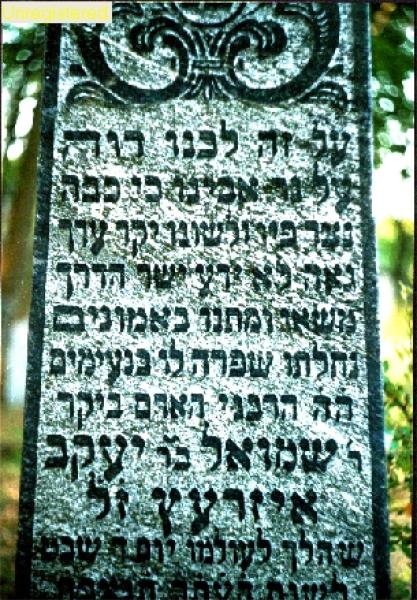 Unregistered
על זה לבנו דוה
על נר אמינו כי כבה
נצר פיו ולשונו יקר ערך
נאה לא ירע ישר הדרך
משאו ומתנו באמונים
נחלתו שפרה לו בנעימים
ה״ה הרבני האדם ביקר
ר׳ שמואל ב״ר יעקב
איזרעץ זל
שהלך לעולמו יום ה שבט
לשנת